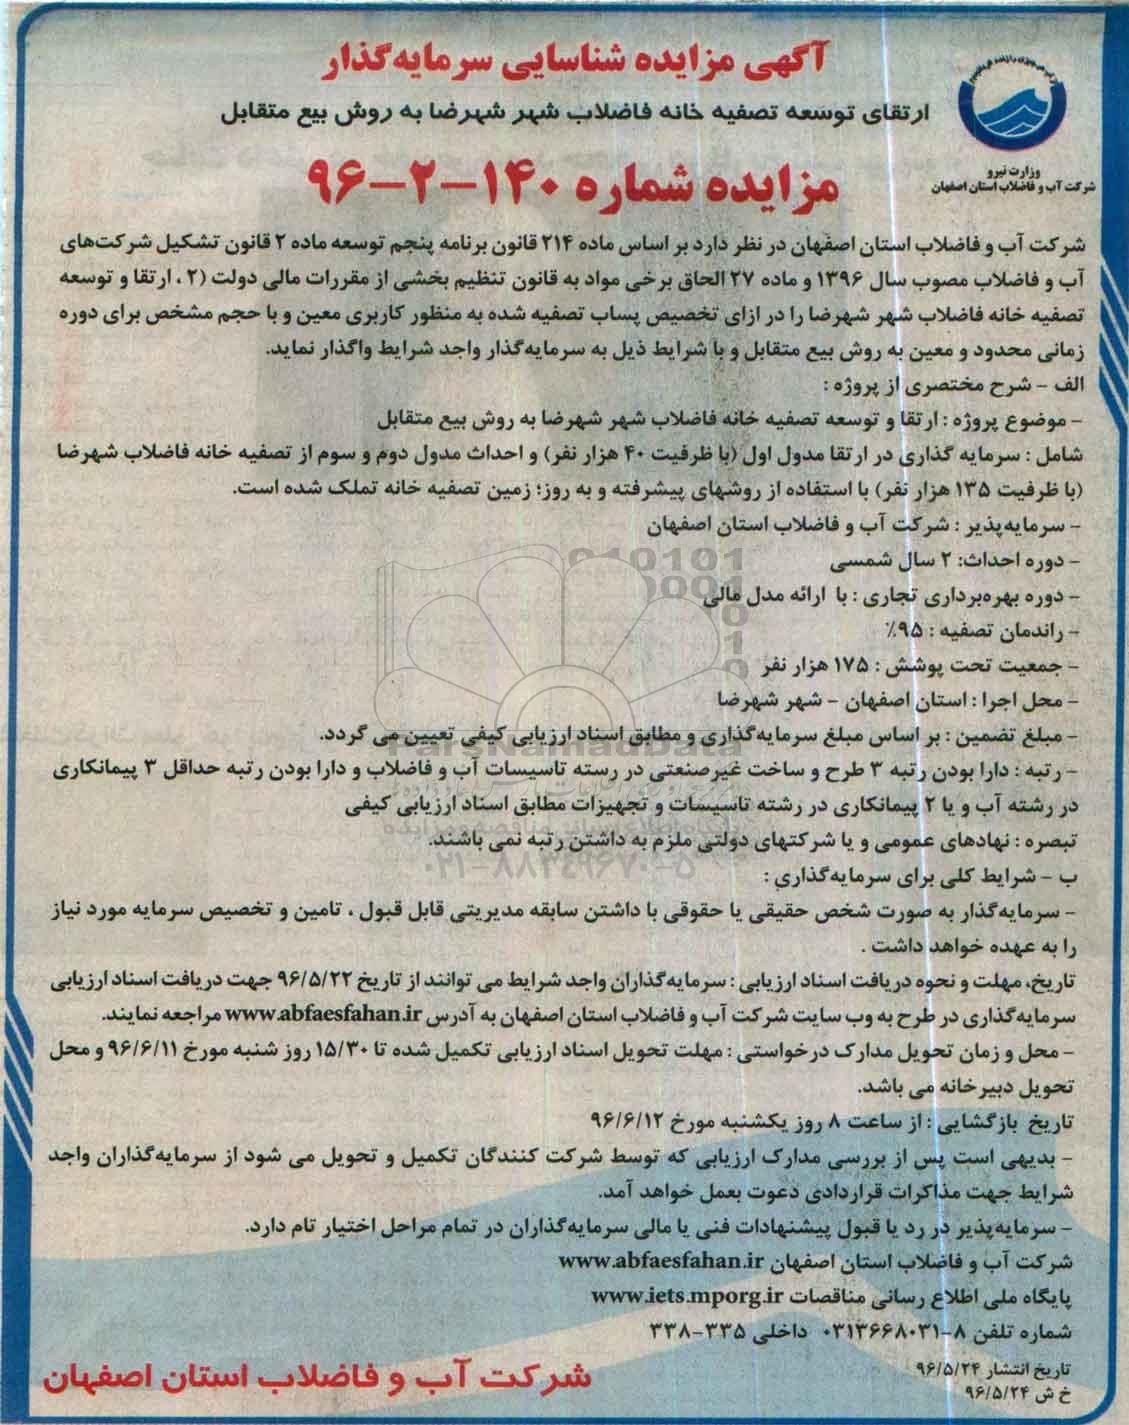 آگهی مزایده شناسایی سرمایه‌گذار
ارتقای توسعه تصفیه خانه فاضلاب شهر شهرضا به روش بیع متقابل
مزایده شماره ۱۴۰-۲-۹۶
وزارت نیرو
شرکت آب و فاضلاب استان اصفهان
شرکت آب و فاضلاب استان اصفهان در نظر دارد بر اساس ماده ۲۱۴ قانون برنامه پنجم توسعه ماده ۲ قانون تشکیل شرکت‌های
آب و فاضلاب مصوب سال ۱۳۹۶ و ماده ۲۷ الحاق برخی مواد به قانون تنظیم بخشی از مقررات مالی دولت (۲ ، ارتقا و توسعه
تصفیه خانه فاضلاب شهر شهرضا را در ازای تخصیص پساب تصفیه شده به منظور کاربری معین و با حجم مشخص برای دوره
زمانی محدود و معین به روش بیع متقابل و با شرایط ذیل به سرمایه‌گذار واجد شرایط واگذار نماید.
الف - شرح مختصری از پروژه :
- موضوع پروژه : ارتقا و توسعه تصفیه خانه فاضلاب شهر شهرضا به روش بیع متقابل
شامل : سرمایه گذاری در ارتقا مدول اول (با ظرفیت ۴۰ هزار نفر) و احداث مدول دوم و سوم از تصفیه خانه فاضلاب شهرضا
(با ظرفیت ۱۳۵ هزار نفر) با استفاده از روشهای پیشرفته و به روز؛ زمین تصفیه خانه تملک شده است.
- سرمایه‌پذیر : شرکت آب و فاضلاب استان اصفهان
- دوره احداث: ۲ سال شمسی
- دوره بهره‌برداری تجاری : با ارائه مدل مالی
- راندمان تصفیه : ۹۵٪
- جمعیت تحت پوشش : ۱۷۵ هزار نفر
- محل اجرا : استان اصفهان - شهر شهرضا
- مبلغ تضمین : بر اساس مبلغ سرمایه‌گذاری و مطابق اسناد ارزیابی کیفی تعیین می گردد.
- رتبه : دارا بودن رتبه ۳ طرح و ساخت غیرصنعتی در رسته تاسیسات آب و فاضلاب و دارا بودن رتبه حداقل ۳ پیمانکاری
در رشته آب و یا ۲ پیمانکاری در رشته تاسیسات و تجهیزات مطابق اسناد ارزیابی کیفی
تبصره : نهادهای عمومی و یا شرکتهای دولتی ملزم به داشتن رتبه نمی باشند.
۰۲۱-۸۸۳۴۹۶۷۰-۵
ب - شرایط کلی برای سرمایه‌گذاری :
- سرمایه‌گذار به صورت شخص حقیقی یا حقوقی با داشتن سابقه مدیریتی قابل قبول ، تامین و تخصیص سرمایه مورد نیاز
را به عهده خواهد داشت .
تاریخ، مهلت و نحوه دریافت اسناد ارزیابی : سرمایه‌گذاران واجد شرایط می توانند از تاریخ ۹۶/۵/۲۲ جهت دریافت اسناد ارزیابی
سرمایه‌گذاری در طرح به وب سایت شرکت آب و فاضلاب استان اصفهان به آدرس www.abfaesfahan.ir مراجعه نمایند.
- محل و زمان تحویل مدارک درخواستی : مهلت تحویل اسناد ارزیابی تکمیل شده تا ۱۵/۳۰ روز شنبه مورخ ۹۶/۶/۱۱ و محل
تحویل دبیرخانه می باشد.
تاریخ بازگشایی : از ساعت ۸ روز یکشنبه مورخ ۹۶/۶/۱۲
- بدیهی است پس از بررسی مدارک ارزیابی که توسط شرکت کنندگان تکمیل و تحویل می شود از سرمایه‌گذاران واجد
شرایط جهت مذاکرات قراردادی دعوت بعمل خواهد آمد.
- سرمایه‌پذیر در رد یا قبول پیشنهادات فنی یا مالی سرمایه‌گذاران در تمام مراحل اختیار تام دارد.
شرکت آب و فاضلاب استان اصفهان www.abfaesfahan.ir
پایگاه ملی اطلاع رسانی مناقصات www.iets.mporg.ir
شماره تلفن ۸-۰۳۱۳۶۶۸۰۳۱ داخلی ۳۳۵-۳۳۸
تاریخ انتشار ۹۶/۵/۲۴
خ ش ۹۶/۵/۲۴
شرکت آب و فاضلاب استان اصفهان